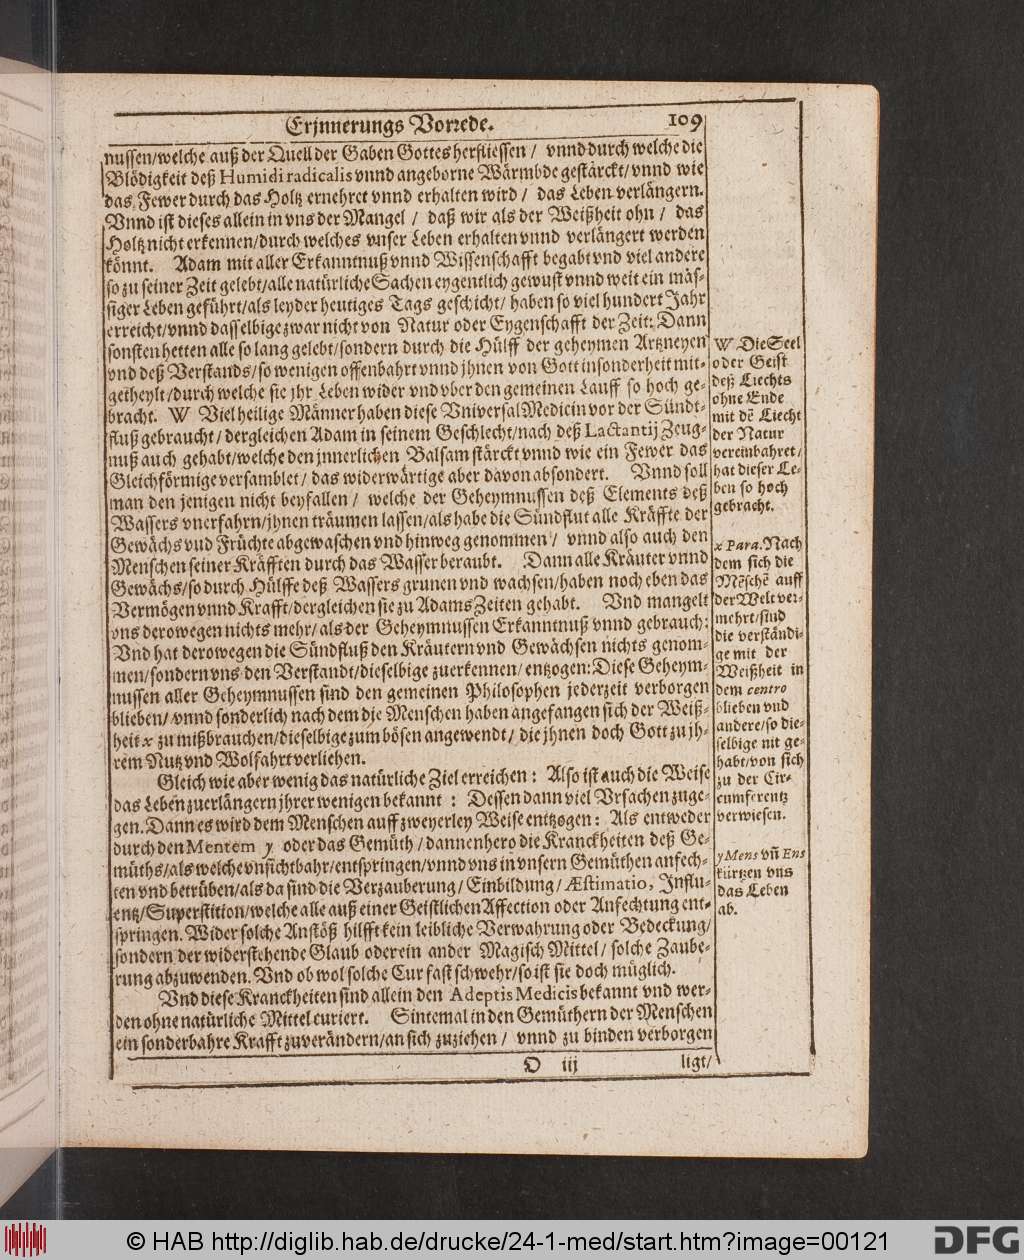 Erjnnerungs Vorrede. 109
nussen/welche auß der Quell der Gaben Gottes herfliessen / vnnd durch welche die
Blödigkeit deß Humidi radicalis vnnd angeborne Wärmbde gestärckt/vnnd wie
das Fewer durch das Holtz ernehret vnnd erhalten wird / das Leben verlängern.
Vnnd ist dieses allein in vns der Mangel / daß wir als der Weißheit ohn / das
Holtz nicht erkennen/durch welches vnser Leben erhalten vnnd verlängert werden
könnt. Adam mit aller Erkanntnuß vnnd Wissenschafft begabt vnd viel andere
so zu seiner Zeit gelebt/alle natürliche Sachen eygentlich gewust vnnd weit ein mäs-
siger Leben geführt/als leyder heutiges Tags geschicht/ haben so viel hundert Jahr
erreicht/vnnd dasselbige zwar nicht von Natur oder Eygenschafft der Zeit: Dann
sonsten hetten alle so lang gelebt/sondern durch die Hülff der geheymen Artzneyen
vnd deß Verstands/so wenigen offenbahrt vnnd jhnen von Gott insonderheit mit-
getheylt/durch welche sie jhr Leben wider vnd vber den gemeinen Lauff so hoch ge-
bracht. W Viel heilige Männer haben diese Vniversal Medicin vor der Sündt-
fluß gebraucht/dergleichen Adam in seinem Geschlecht/nach deß Lactantij Zeug-
nuß auch gehabt/welche den jnnerlichen Balsam stärckt vnnd wie ein Fewer das
Gleichförmige versamblet/ das widerwärtige aber davon absondert. Vnnd soll
man den jenigen nicht beyfallen / welche der Geheymnussen deß Elements deß
Wassers vnerfahrn/jhnen träumen lassen/als habe die Sündflut alle Kräffte der
Gewächs vnd Früchte abgewaschen vnd hinweg genommen/ vnnd also auch den
Menschen seiner Kräfften durch das Wasser beraubt. Dann alle Kräuter vnnd
Gewächs/so durch Hülffe deß Wassers grunen vnd wachsen/haben noch eben das
Vermögen vnnd Krafft/dergleichen sie zu Adams Zeiten gehabt. Vnd mangelt
vns derowegen nichts mehr/als der Geheymnussen Erkanntnuß vnnd gebrauch:
Vnd hat derowegen die Sündfluß den Kräutern vnd Gewächsen nichts genom-
men/sondern vns den Verstandt/dieselbige zuerkennen/entzogen: Diese Geheym-
nussen aller Geheymnussen sind den gemeinen Philosophen jederzeit verborgen
blieben/ vnnd sonderlich nach dem die Menschen haben angefangen sich der Weiß-
heit x zu mißbrauchen/dieselbige zum bösen angewendt/die jhnen doch Gott zu jh-
rem Nutz vnd Wolfahrt verliehen.
Gleich wie aber wenig das natürliche Ziel erreichen: Also ist auch die Weise
das Leben zuerlängern jhrer wenigen bekannt : Dessen dann viel Vrsachen zuge-
gen. Dann es wird dem Menschen auff zweyerley Weise entzogen: Als entweder
durch den Mentem y oder das Gemüth/dannenhero die Kranckheiten deß Ge-
müths/als welche vnsichtbahr/entspringen/vnnd vns in vnsern Gemüthen anfech-
ten vnd betrüben/als da sind die Verzauberung/Einbildung/Æstimatio, Influ-
entz/Superstition/welche alle auß einer Geistlichen Affection oder Anfechtung ent-
springen. Wider solche Anstöß hilfft kein leibliche Verwahrung oder Bedeckung/
sondern der widerstehende Glaub oder ein ander Magisch Mittel/ solche Zaube-
rung abzuwenden. Vnd ob wol solche Cur fast schwehr/so ist sie doch müglich.
Vnd diese Kranckheiten sind allein den Adeptis Medicis bekannt vnd wer-
den ohne natürliche Mittel curiert. Sintemal in den Gemüthern der Menschen
ein sonderbahre Krafft zuverändern/an sich zuziehen / vnnd zu binden verborgen
D iij ligt/
W Die Seel
oder Geist
deß Liechts
ohne Ende
mit dē Liecht
der Natur
vereinbahret/
hat dieser Le-
ben so hoch
gebracht.
x Para. Nach
dem sich die
Mēschē auff
der Welt ver-
mehrt/sind
die verständi-
ge mit der
Weißheit in
dem centro
blieben vnd
andere/so die-
selbige nit ge-
habt/von sich
zu der Cir-
cumferentz
verwiesen.
y Mens vn̄ Ens
kürtzen vns
das Leben
ab.
© HAB http://diglib.hab.de/drucke/24-1-med/start.htm?image=00121
DFG